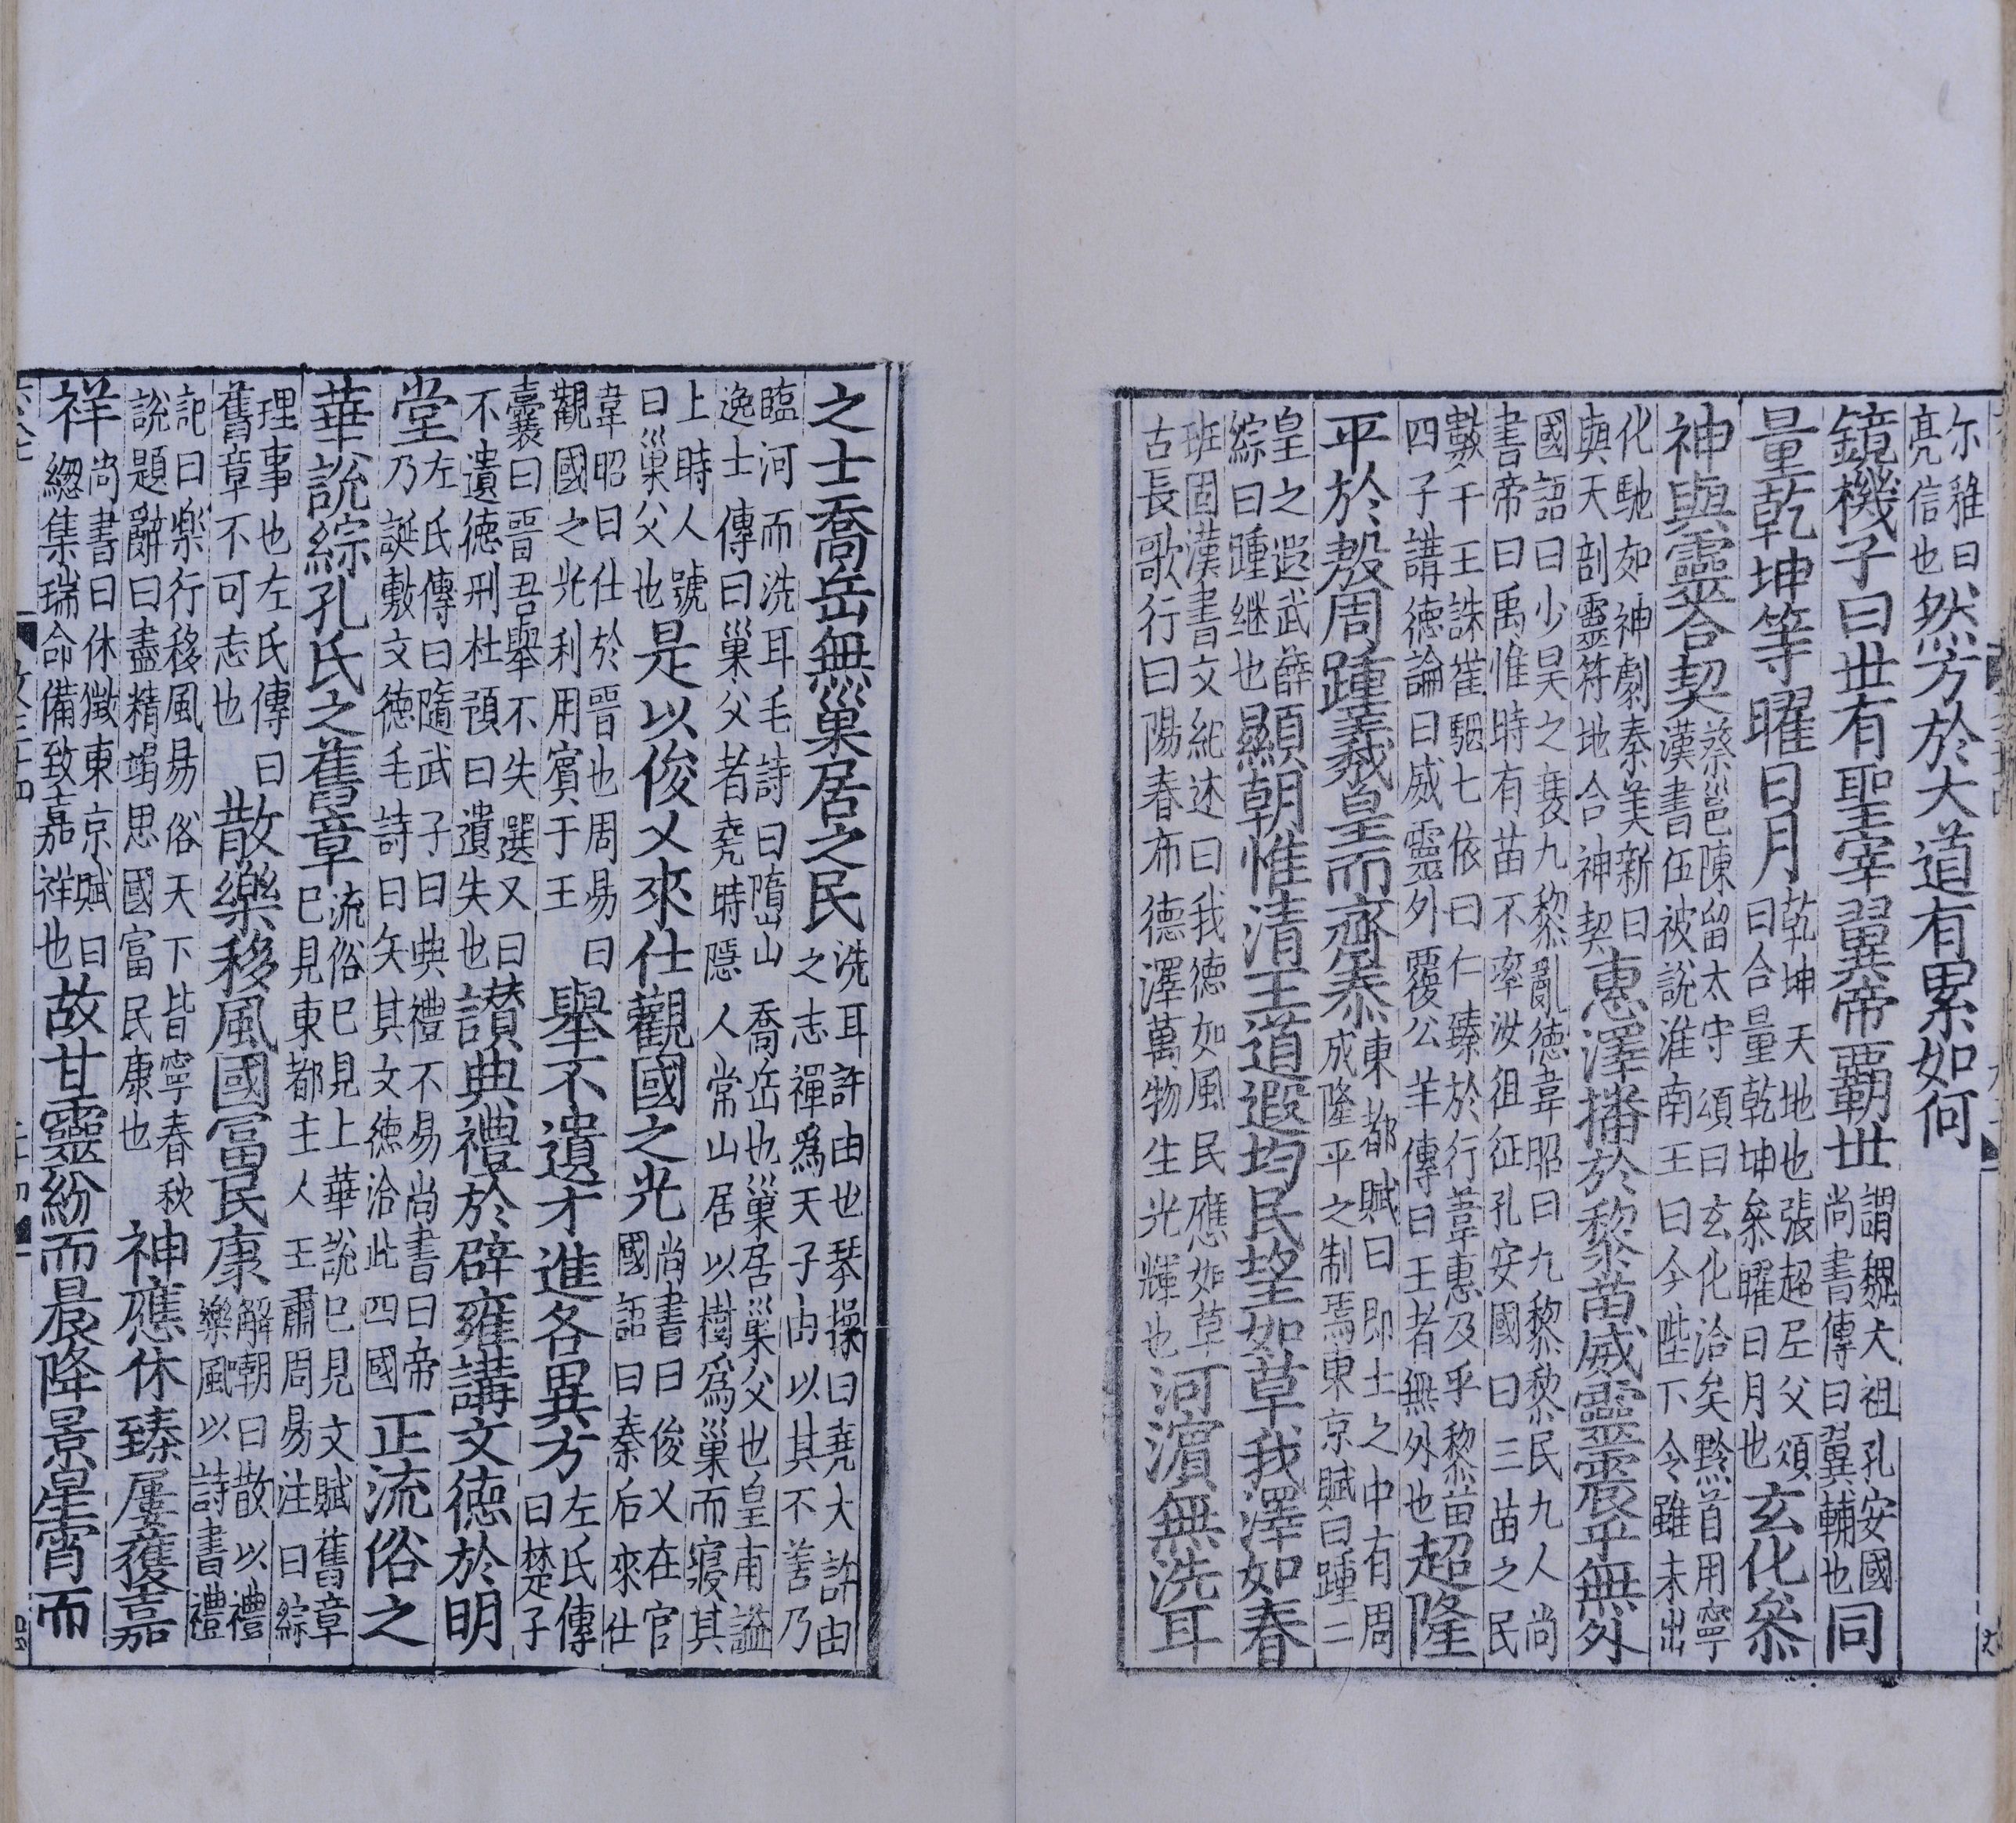 尔雅曰
亮信也
然方於大道有累如何
鏡機子曰世有聖宰翼帝霸世
謂魏大祖孔安國
尚書傳曰翼輔也
同
量乾坤等曜日月
乾坤天地也張超尼父頌
曰合量乾坤叅曜日月也
玄化叅
神與靈合契
蔡邕陳留太守頌曰玄化洽矣黔首用寧
漢書伍被說淮南王曰今陛下令雖未出
化馳如神劇秦美新曰
與天剖靈符地合神契
惠澤播於黎苗威靈震乎無外
國語曰少昊之衰九黎亂德韋昭曰九黎黎民九人尚
書帝曰禹惟時有苗不率汝徂征孔安國曰三苗之民
數千王誅崔駰七依曰仁臻於行葦惠及乎黎苗
四子講德論曰威靈外覆公羊傳曰王者無外也
超隆
平於殷周踵羲皇而齊泰
東都賦曰即土之中有周
成隆平之制焉東京賦曰踵二
皇之遐武薛
綜曰踵継也
顯朝惟清王道遐均民望如草我澤如春
班固漢書文紀述曰我德如風民應如草
古長歌行曰陽春布德澤萬物生光輝也
河濵無洗耳
之士喬岳無巢居之民
洗耳許由也琴操曰堯大許由
之志禪爲天子由以其不善乃
臨河而洗耳毛詩曰墮山喬岳也巢居巢父也皇甫謐
逸士傳曰巢父者堯時隱人常山居以樹爲巢而寢其
上時人號
曰巢父也
是以俊乂來仕觀國之光
尚書曰俊乂在官
國語曰秦后來仕
韋昭曰仕於晉也周易曰
觀國之光利用賓于王
舉不遺才進各異方
左氏傳
曰楚子
囊曰晉君舉不失選又曰
不遺德刑杜預曰遺失也
讃典禮於辟雍講文德於明
堂
左氏傳曰隨武子曰典禮不易尚書曰帝
乃誕敷文德毛詩曰矢其文德洽此四國
正流俗之
華說綜孔氏之舊章
流俗巳見上華說巳見文賦舊章
巳見東都主人王肅周易注曰綜
理事也左氏傳曰
舊章不可志也
散樂移風國富民康
解嘲曰散以禮
樂風以詩書禮
記曰樂行移風易俗天下皆寧春秋
說題辭曰盡精竭思國富民康也
神應休臻屢獲嘉
祥
尚書曰休徵東京賦曰
緫集瑞命備致嘉祥也
故甘靈紛而晨降景星宵而